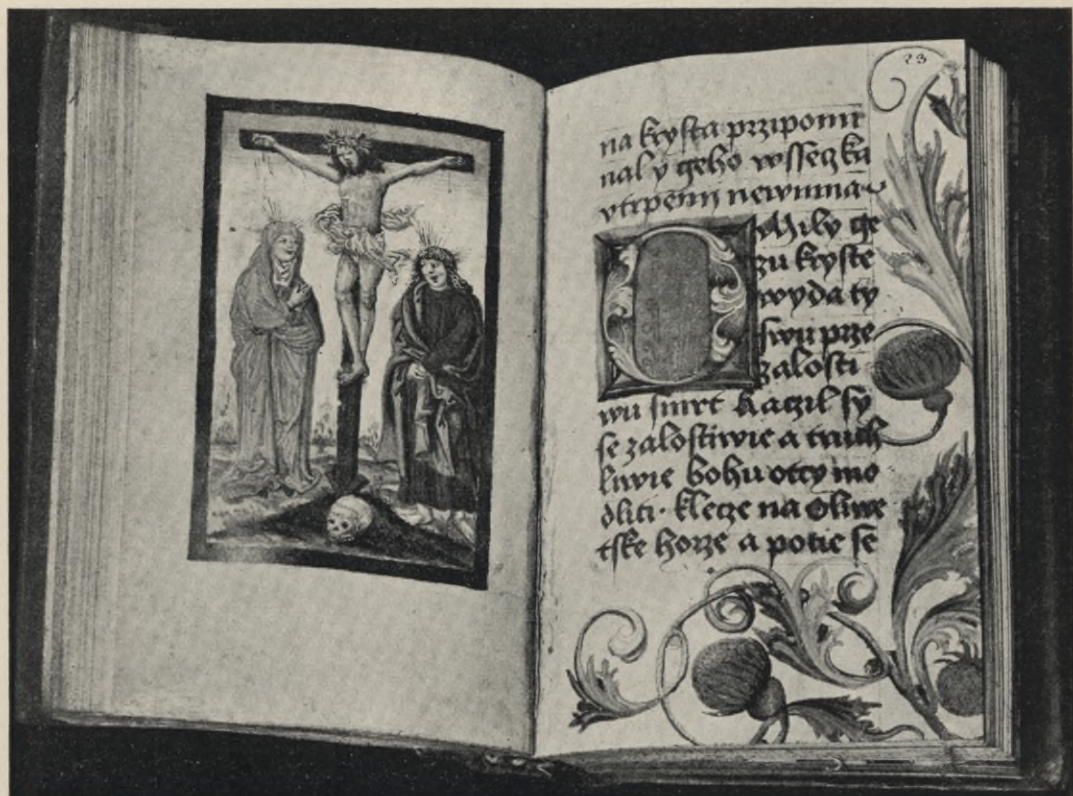 23
na krysta przipomi
nal y geho wsseczka
vtrpenii newinna
O Mily ge
zu kryste
wyda ty
swu prze
zalosti
wu smrt kaczil sy
se zalostiwie a truch
liwie bohu otcy mo
dliti · klecze na oliwe
tske horze a potie se